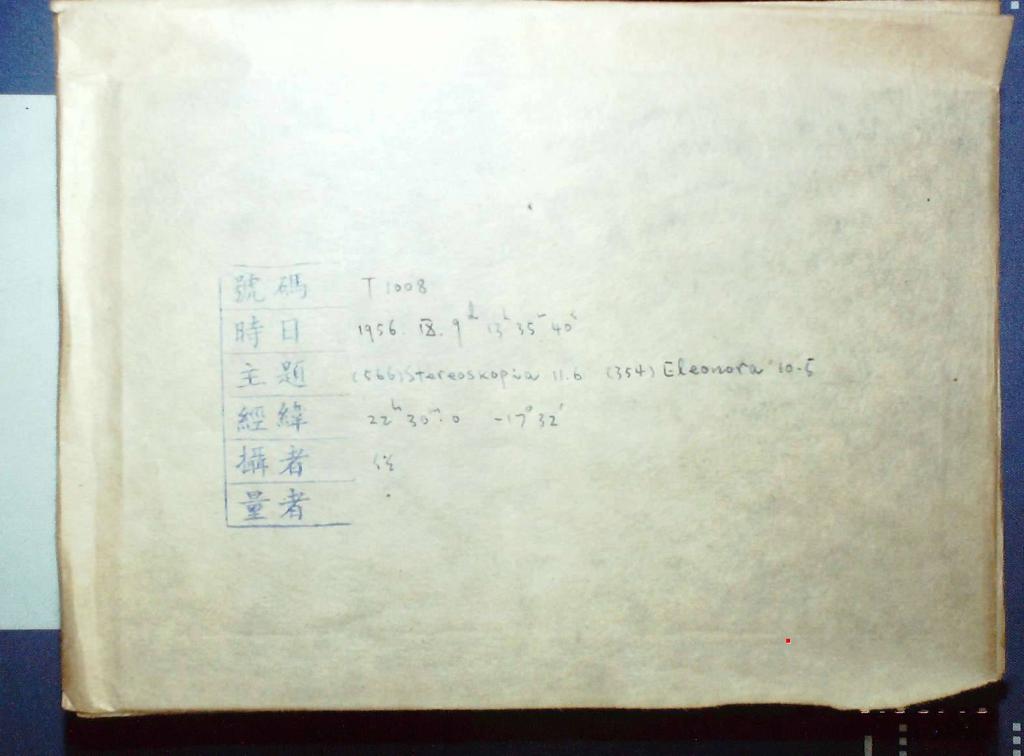 號碼 T 1008
時日 1956. IX. 9ᵈ 13ʰ 35ᵐ 40ˢ
主題 (566) Stereoskopia 11.6 (354) Eleonora 10.5
經緯 22ʰ 30ᵐ.0 -17°32′
攝者
量者